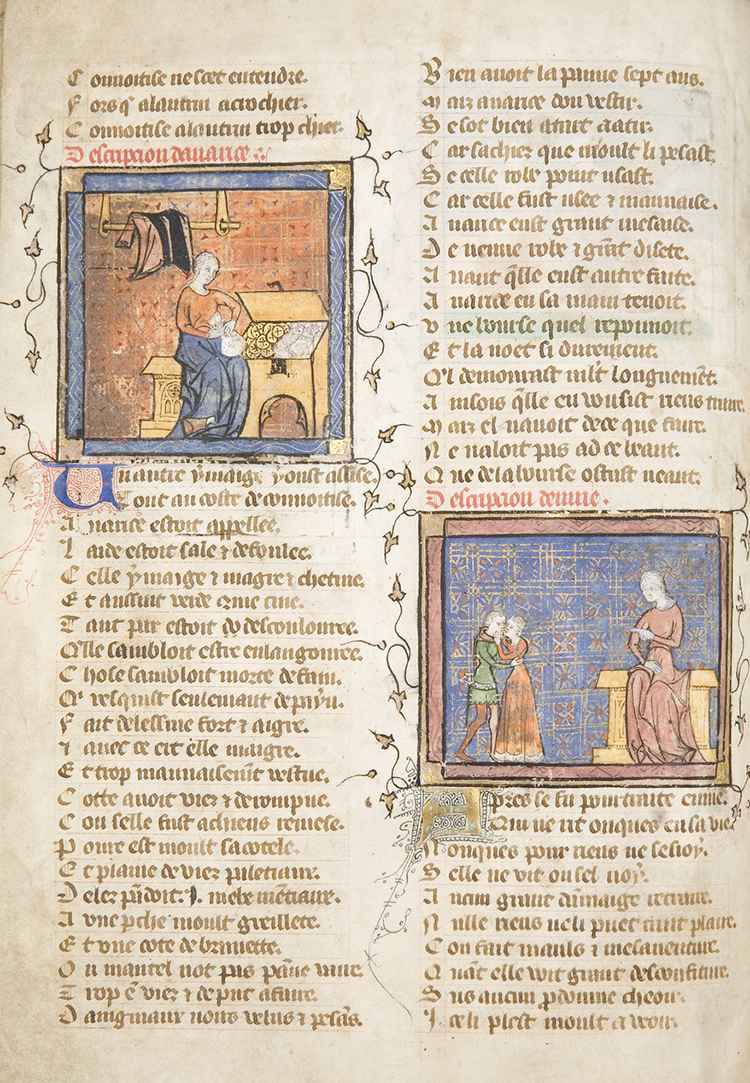 Connoitise ne scet entendre.
Fors q̄ alautrui acrochier.
Connoitise a lautrui trop chier.
Descripcion dauarice
Un autre ymaige y oust assise.
Tout au coste de connoitise.
Auarice estoit appellee.
Laide estoit sale ⁊ defoulee.
Celle ymaige ⁊ maigre ⁊ chetiue.
Et aussint verde cōme ciue.
Tant par estoit descoulouree.
Q̄lle sambloit estre enlangouree.
Chose sambloit morte de faim.
Qi vesquist seulemant de pain.
Fait de lessiue fort ⁊ aigre.
⁊ auec ce ert elle maigre.
Et trop mauuaisemt vestue.
Cotte auoit viez ⁊ derompue.
Con selle fust a chiens remese.
Poure est moult sa cotele.
Et plaine de viez
Delez
A vne perche moult greillete.
Et vne cote de brunette.
Ou mantel not pas pāne vaire.
Trop ē viez ⁊ de
Daigniaux noirs velus ⁊ pesās.
Bien auoit la pāne sept ans.
Mais auarice dou vestir.
Se sot bien
Car sachiez que moult li pesast.
Se celle robe point usast.
Car celle fust usee ⁊ mauuaise.
Auarice eust grant mesaise.
De neuue robe ⁊ grāt disete.
Auant q̄lle eust autre faite.
Auarice en sa main tenoit.
Vne bourse quel reponnoit.
Et la noet si durement.
Q̄l demorast mlt longuemēt.
Ainsois q̄lle en riens
Mais el nauoit de ce que faire.
Ne
Que de la bourse ostast neant.
Descripcion denuie.
Apres se fu pourtraite enuie.
Qui ne rit onques en sa vie
Nonques pour riens ne
Selle ne vit ou sel noy.
Aucun grant dāmaige retraire.
Nulle riens ne li puet tant plaire.
Con fait mauls ⁊ mesauenture.
Quāt elle voit grant desconfiture.
Sus aucun p̄domme cheoir.
Ice li plest moult a veoir.